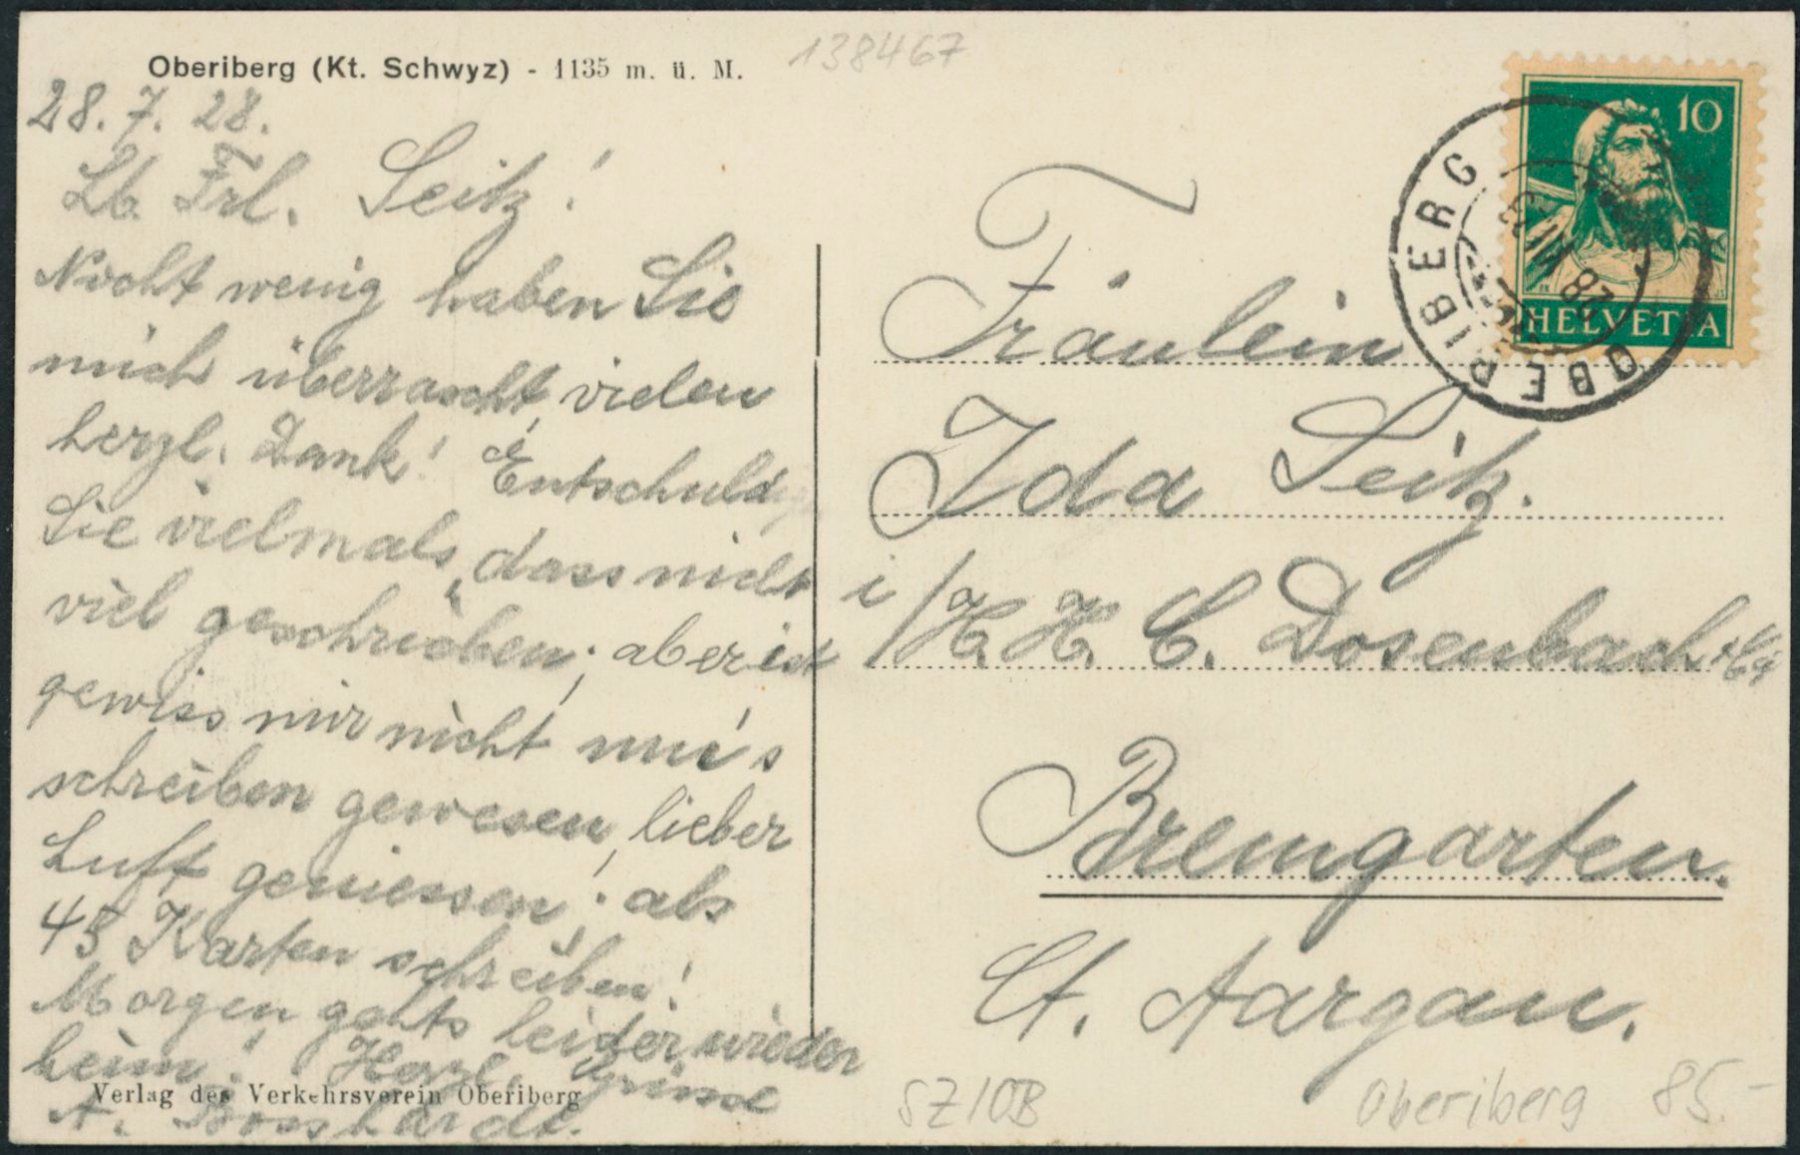 Oberiberg (Kt. Schwyz) - 1135 m. ü. M.
138467
28. 7. 28.
Lb. Frl. Seitz!
Nicht wenig haben Sie
mich überrascht, vielen
herzl. Dank! Entschuldig
Sie vielmals, dass nicht
viel geschrieben; aber ist
gewiss mir nicht um's
schreiben gewesen, lieber
Luft geniessen; als
45 Karten schreiben!
Morgen gehts leider wieder
heim! Herzl. Grüsse
A. Bosshardt.
Verlag des Verkehrsverein Oberiberg
10
HELVETIA
OBERIBERG
28 VII 28
Fräulein
Ida Seitz.
i/H. H. C. Dosenbach & Cie
Bremgarten.
Ct. Aargau.
SZ10B
Oberiberg 85.-